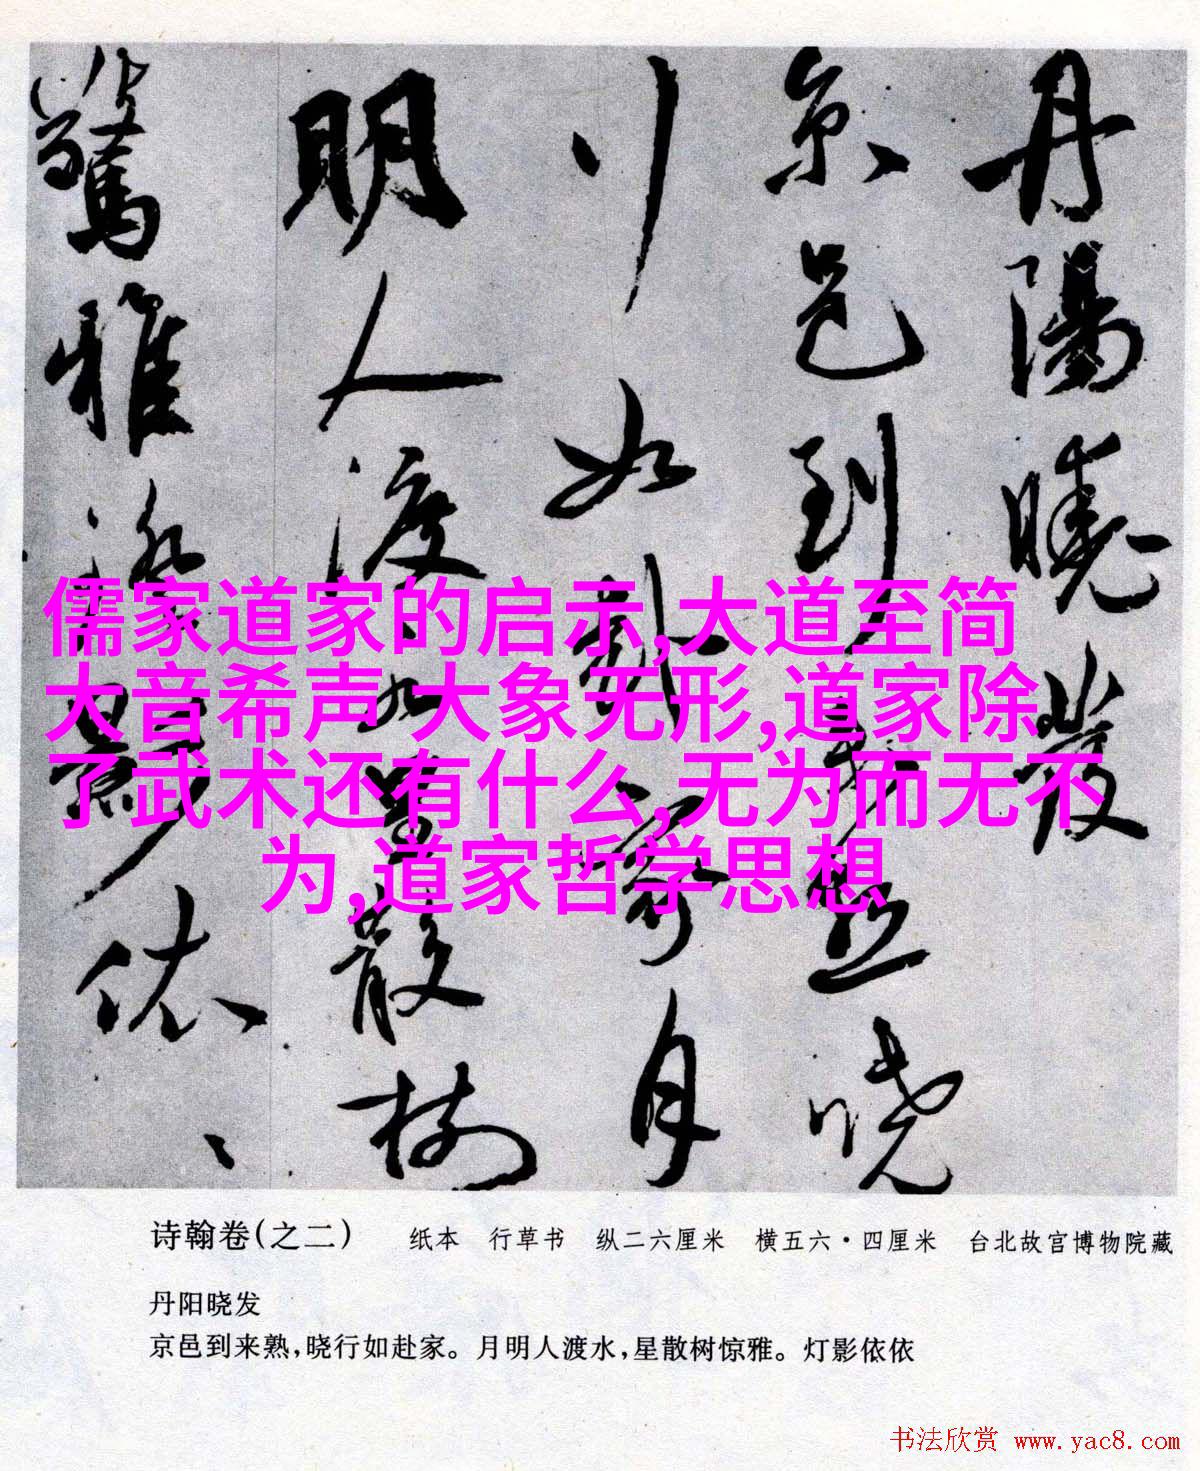 丹陽曉發
京邑到来熟曉
行如赴家月
明人渡水星散樹
驚雅燈影依、、
儒家道家的启示,大道至简
大音希声 大象无形,道家除
了武术还有什么,无为而无不
为,道家哲学思想
诗翰卷(之二) 纸本 行草书 纵二六厘米 横五六·四厘米 台北故宫博物院藏
丹阳晓发
京邑到来熟,晓行如赴家。月明人渡水,星散树惊雅。灯影依依
书法欣赏 www.yac8.com